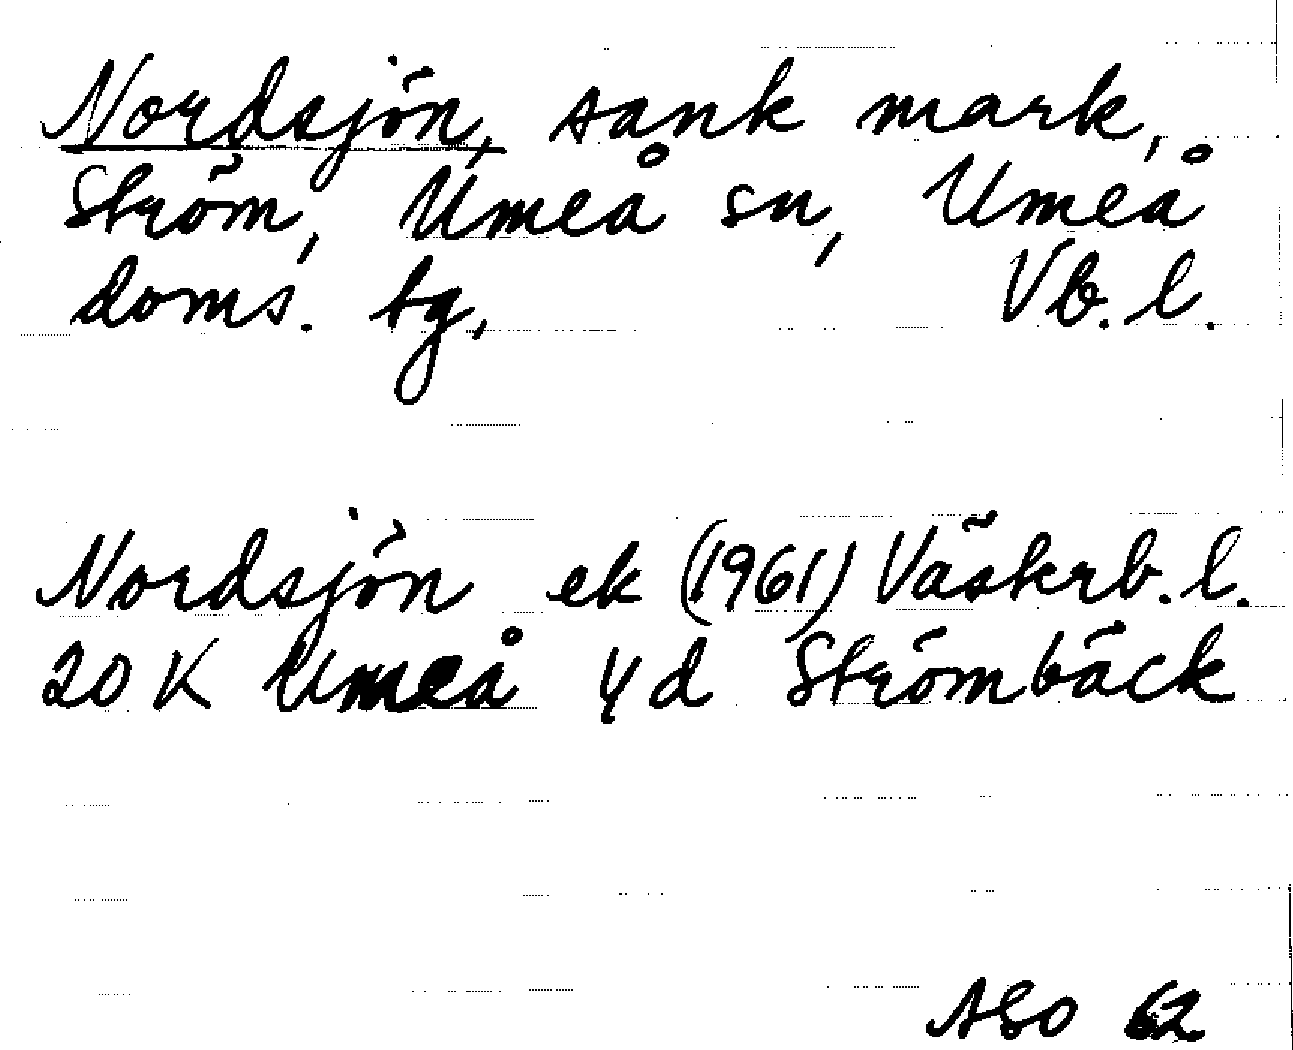 Nordsjön, sank mark,
Ström, Umeå sn, Umeå
doms. tg, Vb. l.
Nordsjön ek (1961) Västerb. l.
20 K Umeå 4d Strömbäck
ASO 62